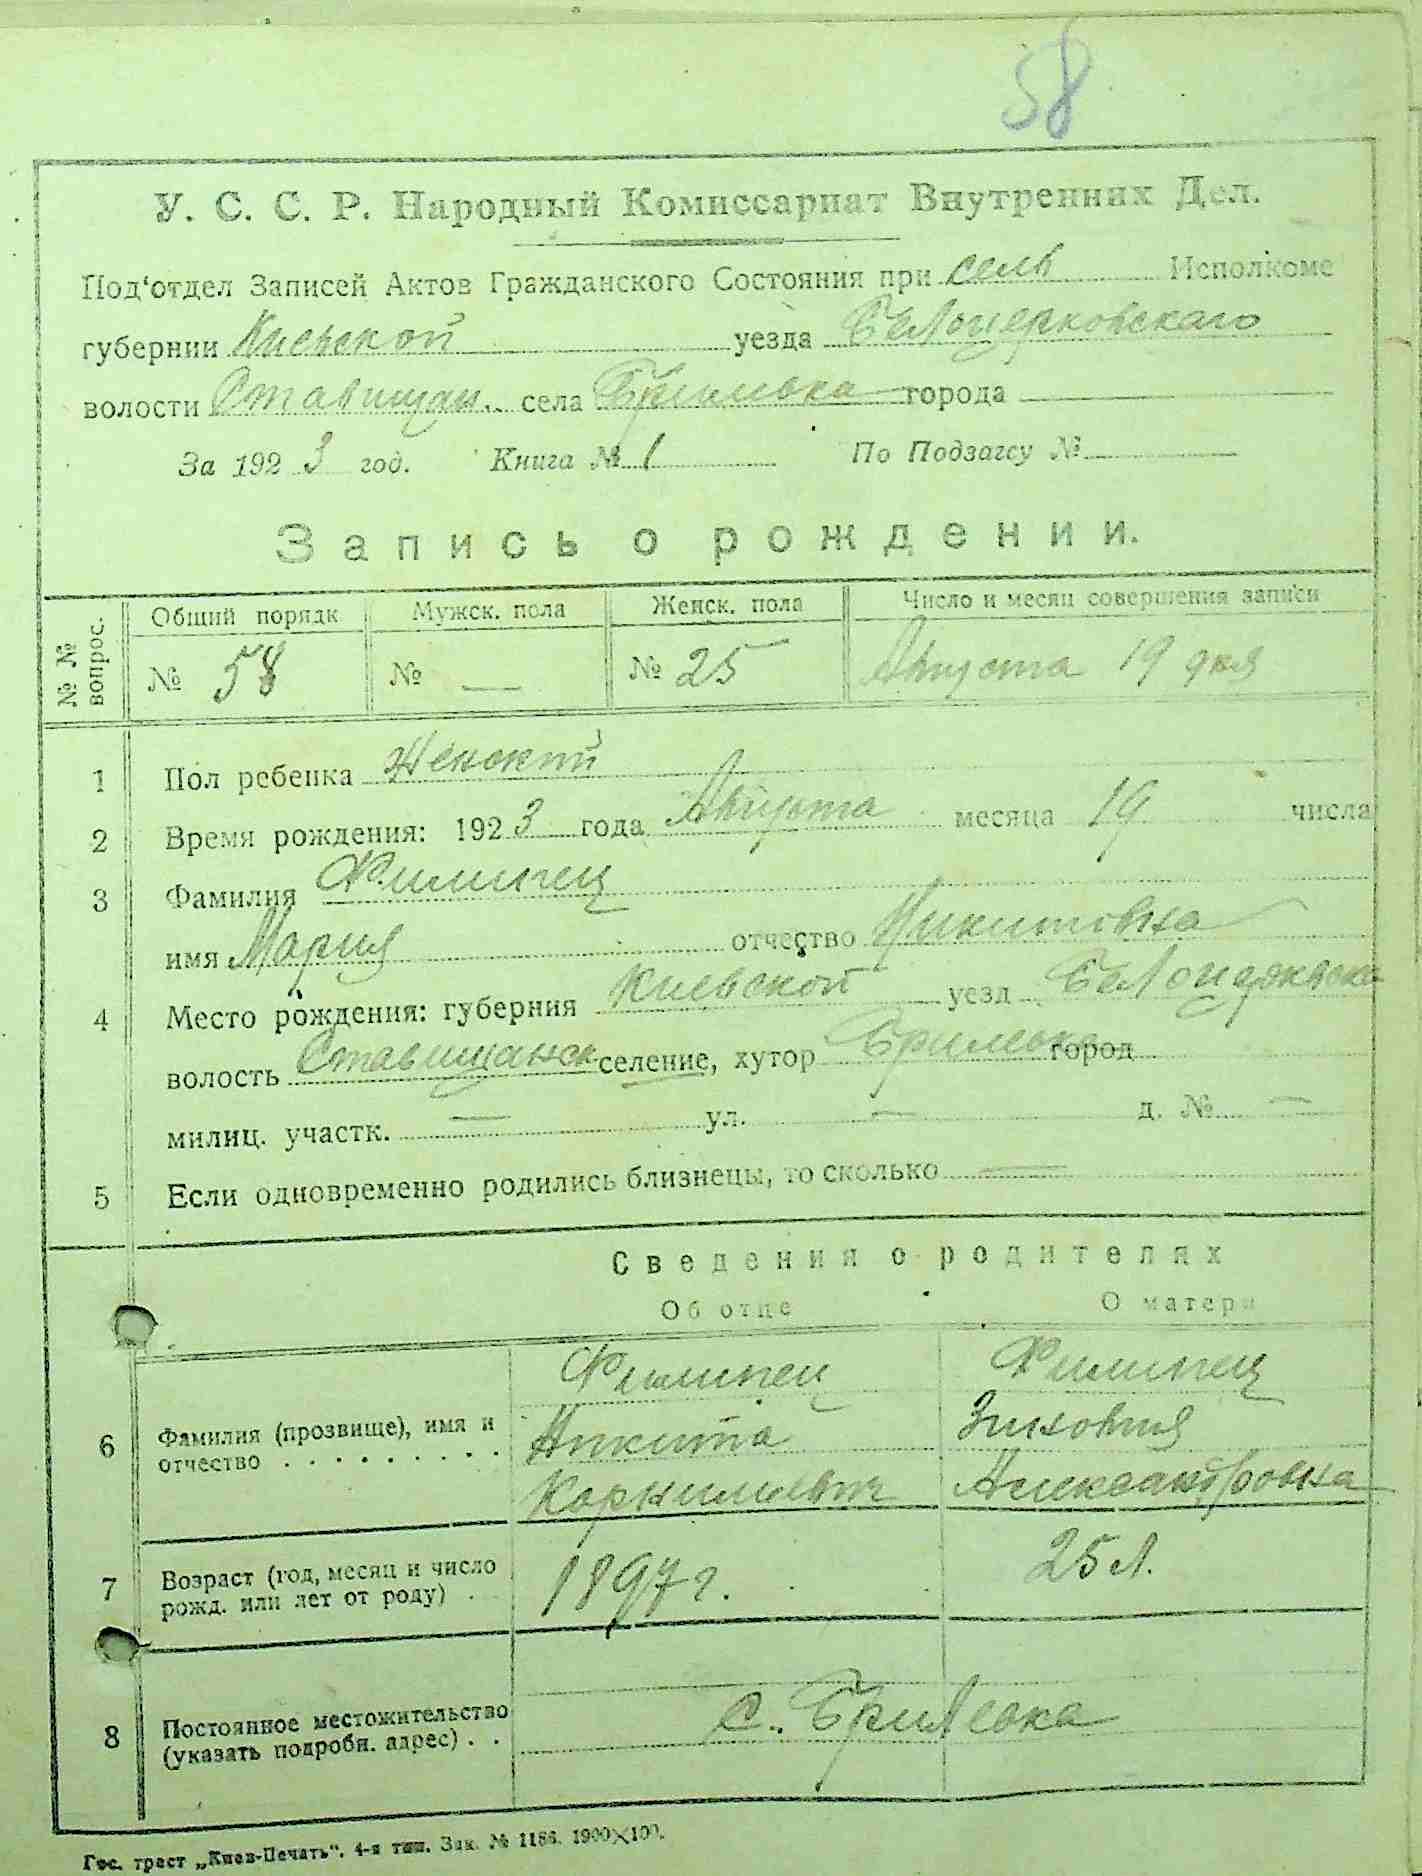 58
У. С. С. Р. Народный Комиссариат Внутренних Дел.
Под‘отдел Записей Актов Гражданского Состояния при сель Исполкоме
губернии Киевской уезда Белоцерковскаго
волости Ставищан. села Бриливка города
За 1923 год. Книга № 1 По Подзагсу №
Запись о рождении.
№ № вопрос. Общий порядк Мужск. пола Женск. пола Число и месяц совершения записи
№ 58 № — № 25 Августа 19 дня
1 Пол ребенка Женский
2 Время рождения: 1923 года Августа месяца 19 числа
3 Фамилия Филипец
имя Мария отчество Никитовна
4 Место рождения: губерния Киевской уезд Белоцерковска
волость Ставищанск селение, хутор город
милиц. участк. — ул. — д. № —
5 Если одновременно родились близнецы, то сколько —
Сведения о родителях
Об отце О матери
Филипец Филипец
6 Фамилия (прозвище), имя и Никита Зиновия
отчество . . . . . . . . . Корнилиевич Александровна
7 Возраст (год, месяц и число 1897 г. 25 л.
рожд. или лет от роду) .
8 Постоянное местожительство с. Брилевка
(указать подробн. адрес) . .
Гос. трест „Киев-Печать“. 4-я тип. Зак. № 1186. 1900×100.